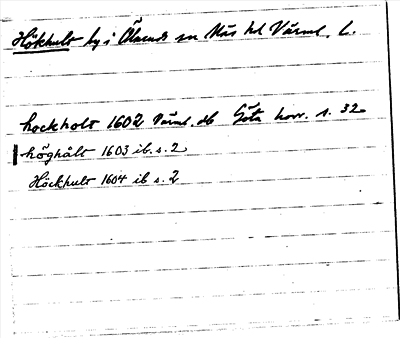 Hökhult by i Ölseruds sn Näs hd Värml. l.
hockholt 1602 Värml. db Göta hovr. s. 32
höghålt 1603 ib. s. 2
Höckhult 1604 ib s. 2